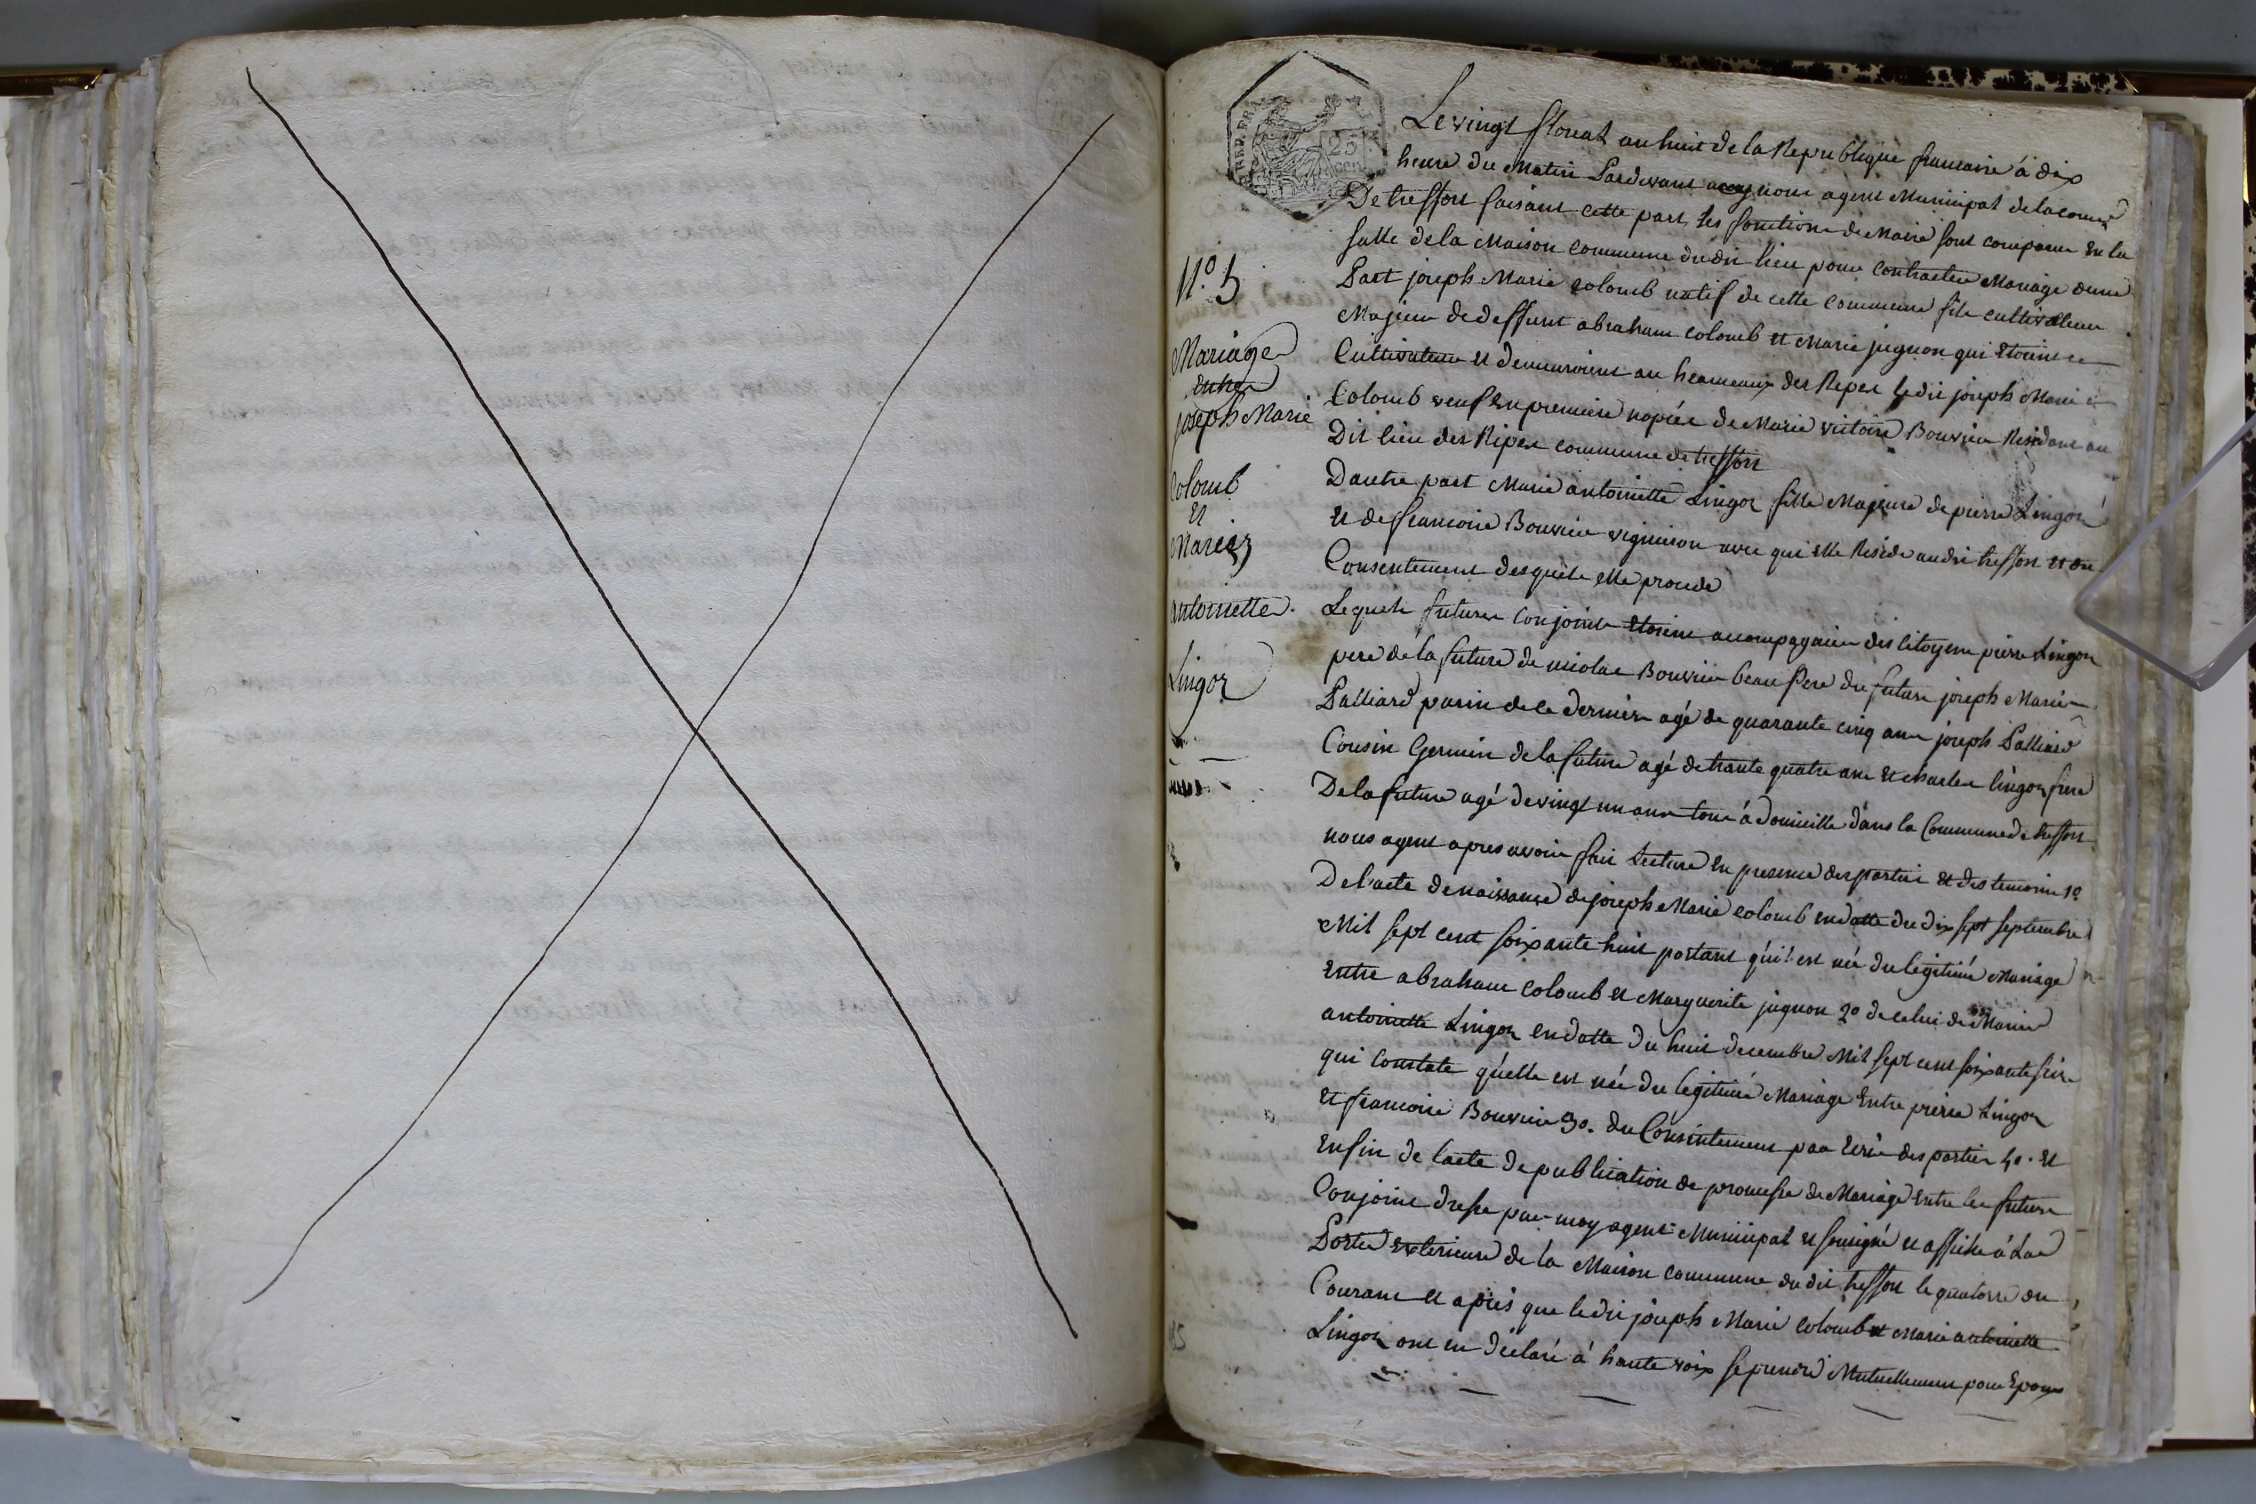 REP. FRA
25
CEN
Le vingt floreal an huit de la Republique francaise à dix
heure du Matin Pardevant nous agent Municipal de la comune
De treffort faisant cette part les fonctions de Maire sont comparu En la
salle de la Maison commune du dit lieu pour contracter Mariage dune
N.º 5
Part joseph Marie colomb natif de cette commune fils cultivateur
Majeur de deffunt abraham colomb et Marie jugnon qui Etoient
Mariage
Cultivateur et demeuroient au heameaux des Ripes ledit joseph Marie
Entre
joseph Marie
Colomb veuf En premiere nopces de Marie victoire Bouvier Residant au
Dit lieu des Ripes commune de treffort
Colomb
Dautre part Marie antoinette Lingon fille Majeure de pierre Lingon
Et
Et de francoise Bouvier vigneron avec qui elle Reside audit treffort et du
Marie
Consentement desquels elle procede
antoinette
Lesquels futures conjoints Etoient accompagnies des citoyens pierre Lingon
Lingon
pere de la future de nicolas Bouvier beau Pere du future joseph Marie
Palliard parin de ce dernier agé de quarante cinq ans joseph Palliard
Cousin Germin de la future agé de trante quatre ans et charles lingon frere
De la future agé de vingt un ans tous à domicille dans la Commune de treffort
nous agent apres avoir fait Lecture En presence des parties et des temoins 1º
De l'acte de naissance de joseph Marie colomb en datte du dix sept septembre
Mil sept cent soixante huit portant qu'il est née du legitimé Mariage
Entre abraham colomb et Marguerite jugnon 2º de celui de Marie
antoinette Lingon en datte du huit decembre Mil sept cent soixante seize
qui constate qu'elle est née du legitimé Mariage Entre pierre Lingon
Et francoise Bouvier 3º. du Consentement par Ecrit des parties 4º. et
Enfin de l'acte de publication de promesse de Mariage Entre les futures
Conjoins dressé par moy agent Municipal et sousigné et affiché à la
Porte Exterieure de la Maison commune du dit treffort le quatorze du
Courant et après que ledit joseph Marie colomb et Marie antoinette
Lingon ont eu déclaré à haute voix se prendre Mutuellement pour Epoux